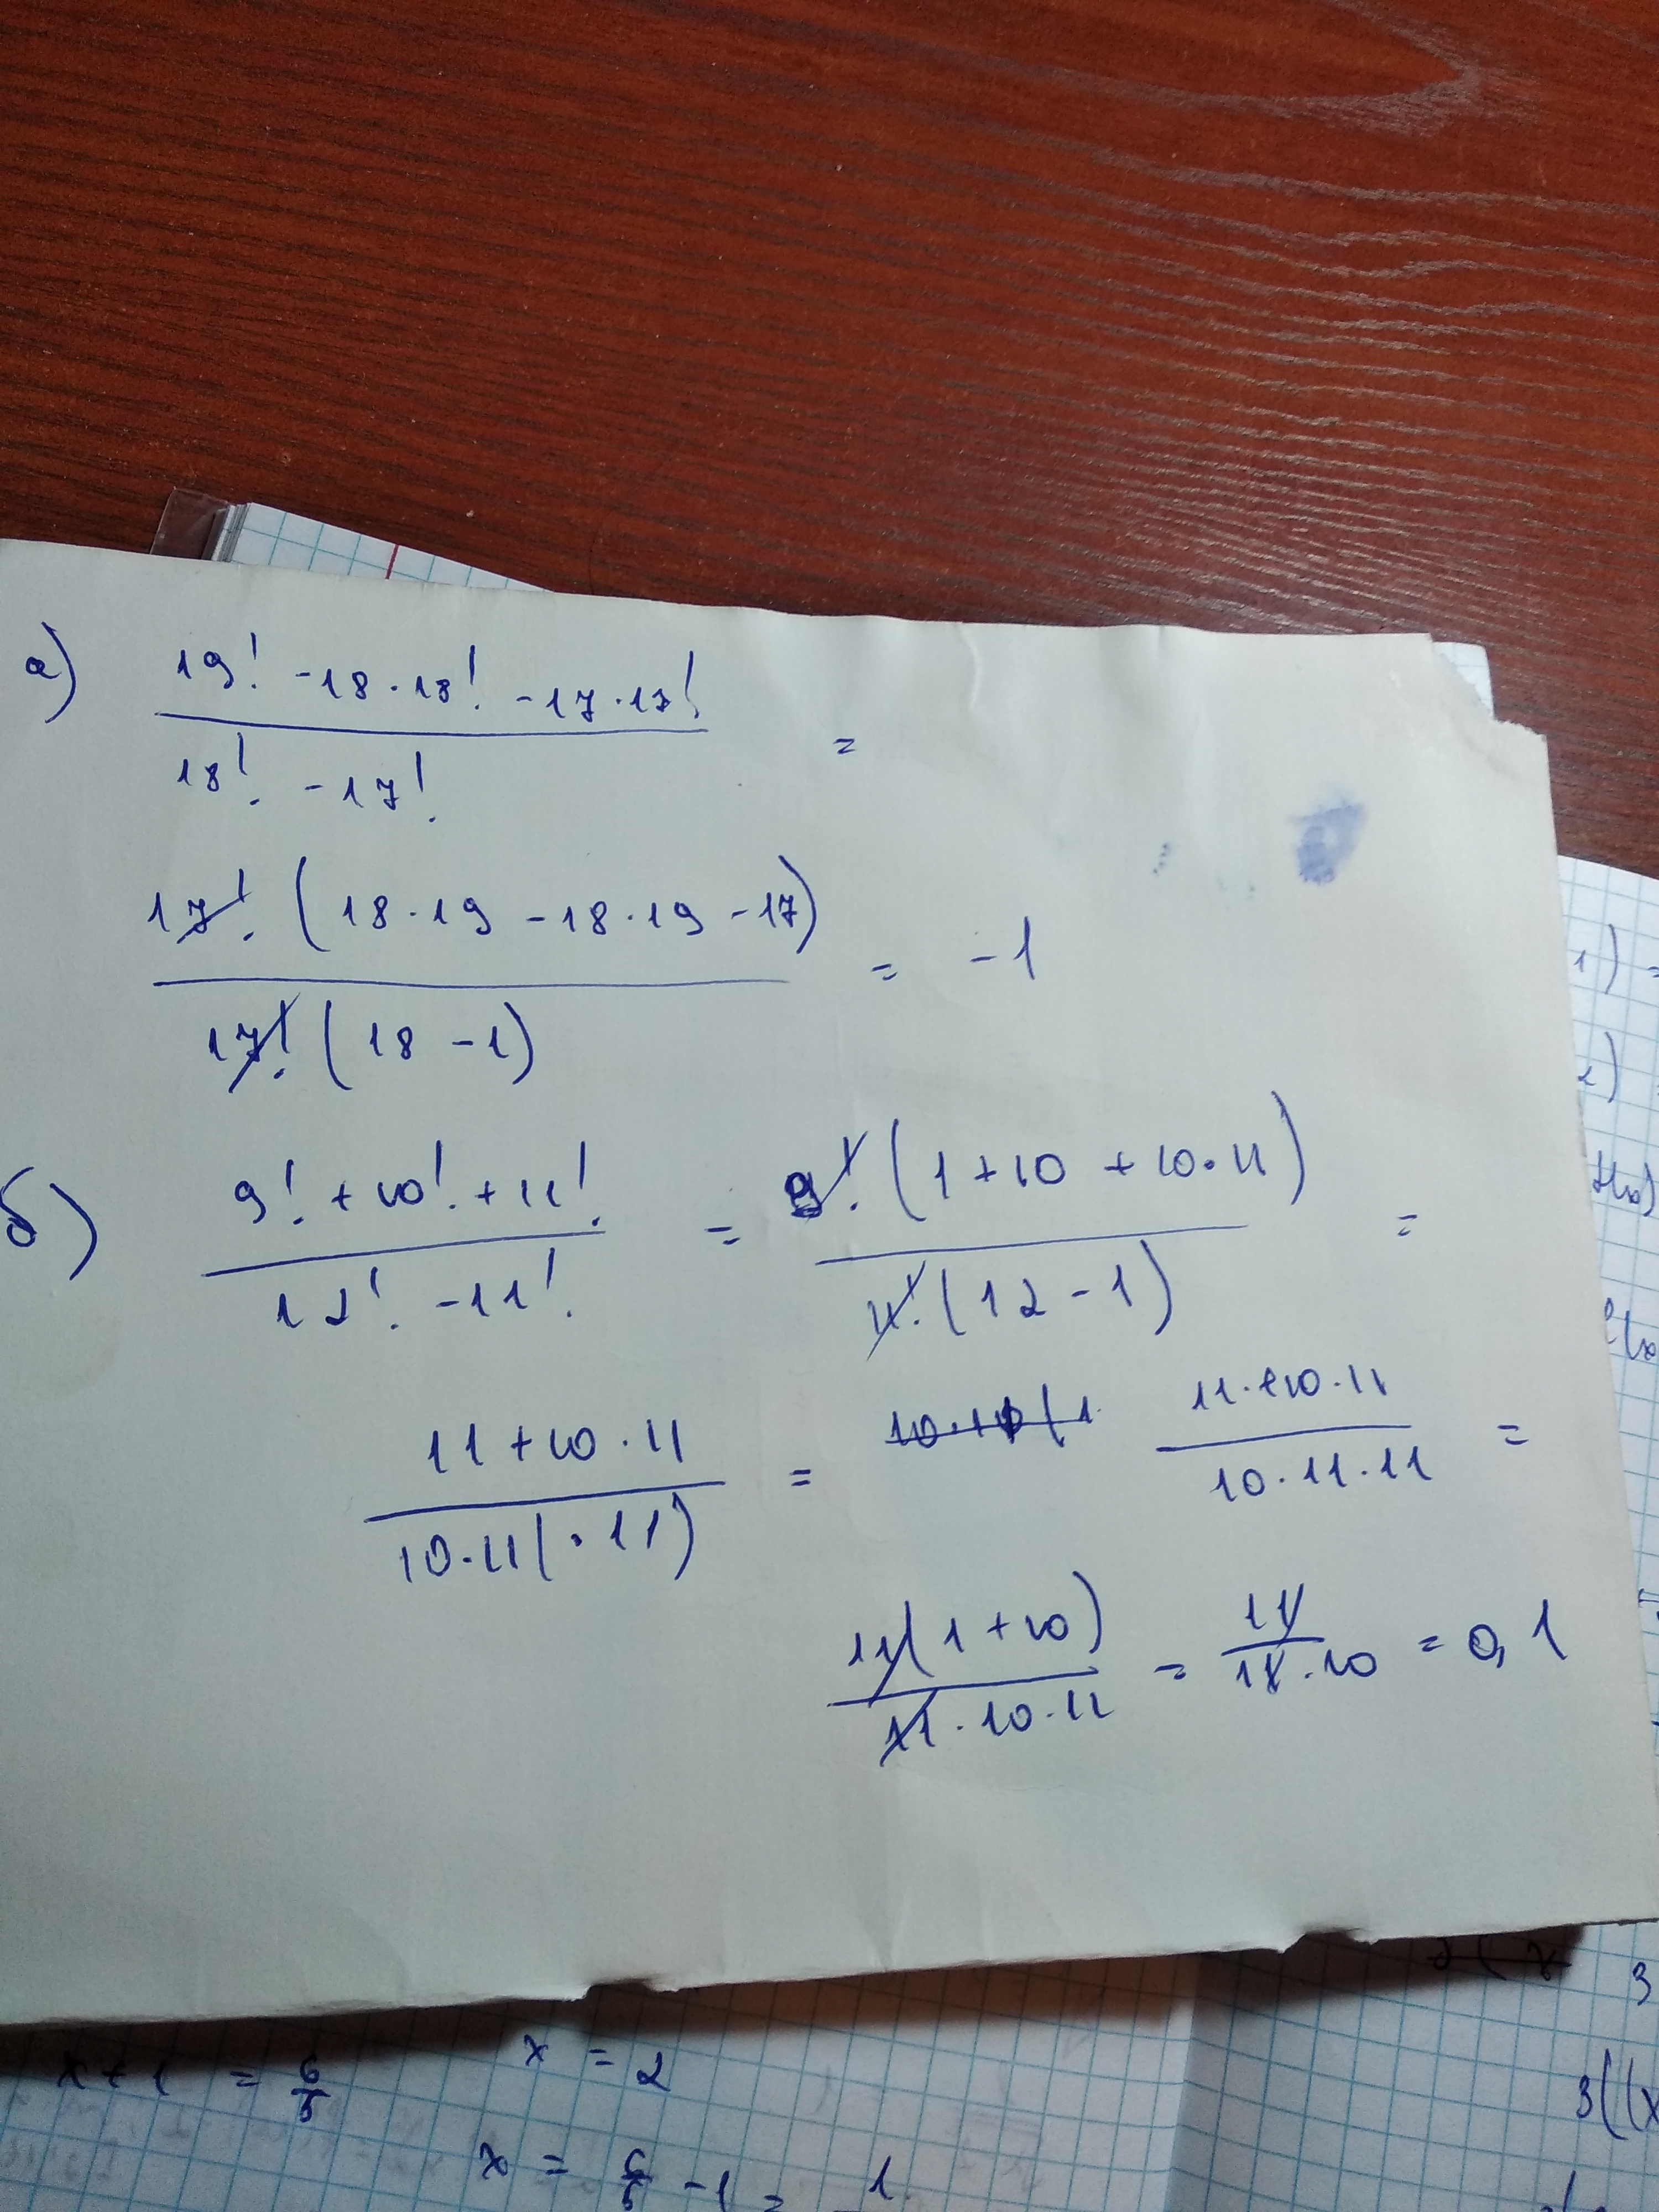 а) (19! - 18·18! - 17·17!) / (18! - 17!) =
17! (18·19 - 18·19 - 17) / 17! (18 - 1) = -1
б) (9! + 10! + 11!) / (12! - 11!) = 9! (1 + 10 + 10·11) / 11! (12 - 1) =
(11 + 10·11) / 10·11(·11) = 10·10(1 11·10·11 / 10·11·11 =
11(1 + 10) / 11·10·11 = 11 / 11·10 = 0,1
x + 1 = 6/5 x = 2
x = 6/5 - 1 = 1
1) =
2)
3
3((x